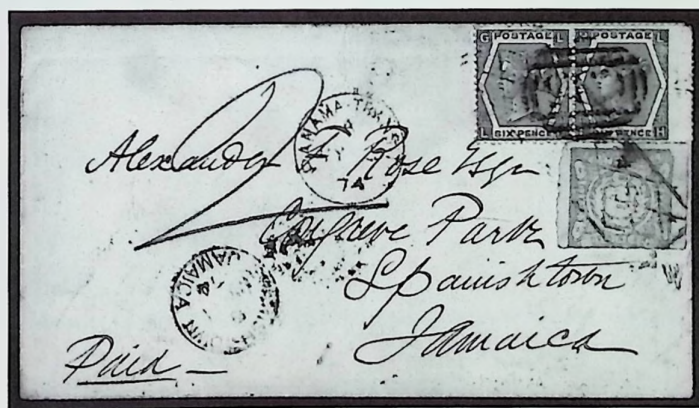 G POSTAGE L POSTAGE L
L SIX PENCE PENCE H
PANAMA TRANSIT
74
Alexander Rose Esqr
2
Park
Spanishtown
Jamaica
JAMAICA
Paid